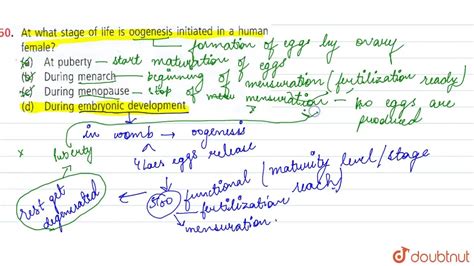 50. At what stage of life is oogenesis initiated in a human
female? formation of eggs by ovary
(a) At puberty – start maturation of eggs
(b) During menarch – beginning of mensuration (fertilization ready)
(c) During menopause – stop of mensuration – no eggs are
produced
(d) During embryonic development
in womb → oogenesis
x Puberty
eggs release
functional (maturity level/stage
reach)
rest get
degenerated
fertilization
mensuration.
doubtnut